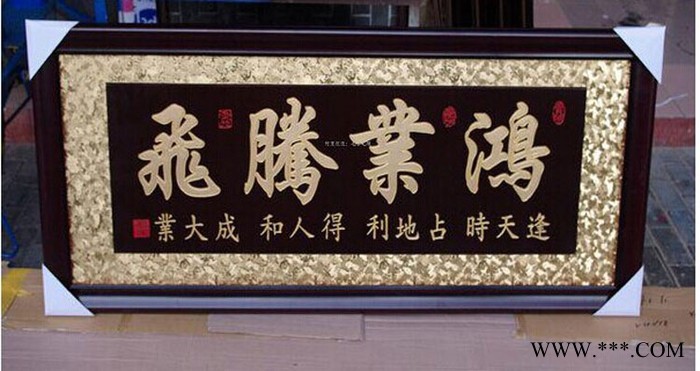 鴻業騰飛
逢天時 占地利 得人和 成大業
WWW.***.COM